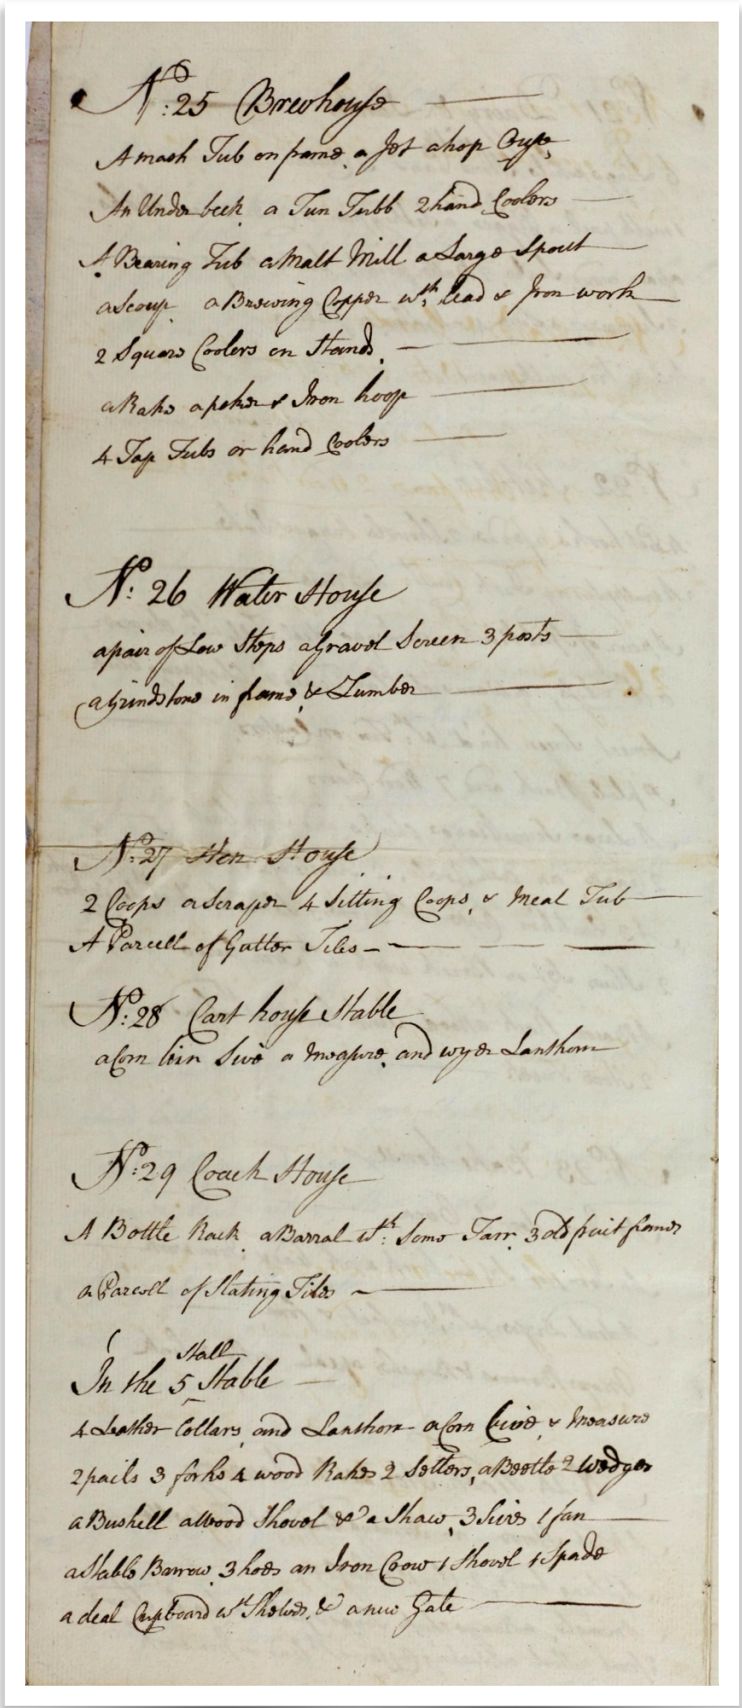 No: 25 Brewhouse
A mash Tub on frame, a Jet a hop
An Underbeck a Tun Tubb 2 hand Coolers
A Bearing Tub a Malt Mill a Large Spout
a Scoup a Brewing Copper wth. lead & Iron work
2 Square Coolers on Stands.
a Rake a poker & Iron hoop
4 Tap Tubs or hand Coolers
No: 26 Water House
a pair of Low Steps a Gravel Screen 3 posts
a Grindstone in frame, & Lumber
No: 27 Hen House
2 Coops a Scraper 4 Sitting Coops, & Meal Tub
A Parcell of Gutter Tiles
No: 28 Cart house Stable
a Corn bin Sive a Measure, and wyer Lanthorn
No: 29 Coach House
A Bottle Rack a Barral wth: Some Tarr, 3 old frames
a Parcell of Slating Tiles
In the 5 Stall Stable
4 Leather Collars, and Lanthorn a Corn Sive, & Measure
2 pails 3 forks 4 wood Rakes 2 Setters, a Beetle 2 Wedges
a Bushell a Wood Shovel & a Shaw, 3 Sives 1 fan
a Stable Barrow, 3 hoes an Iron Crow 1 Shovel 1 Spade
a deal Cupboard wth Shelves, & a new Gate